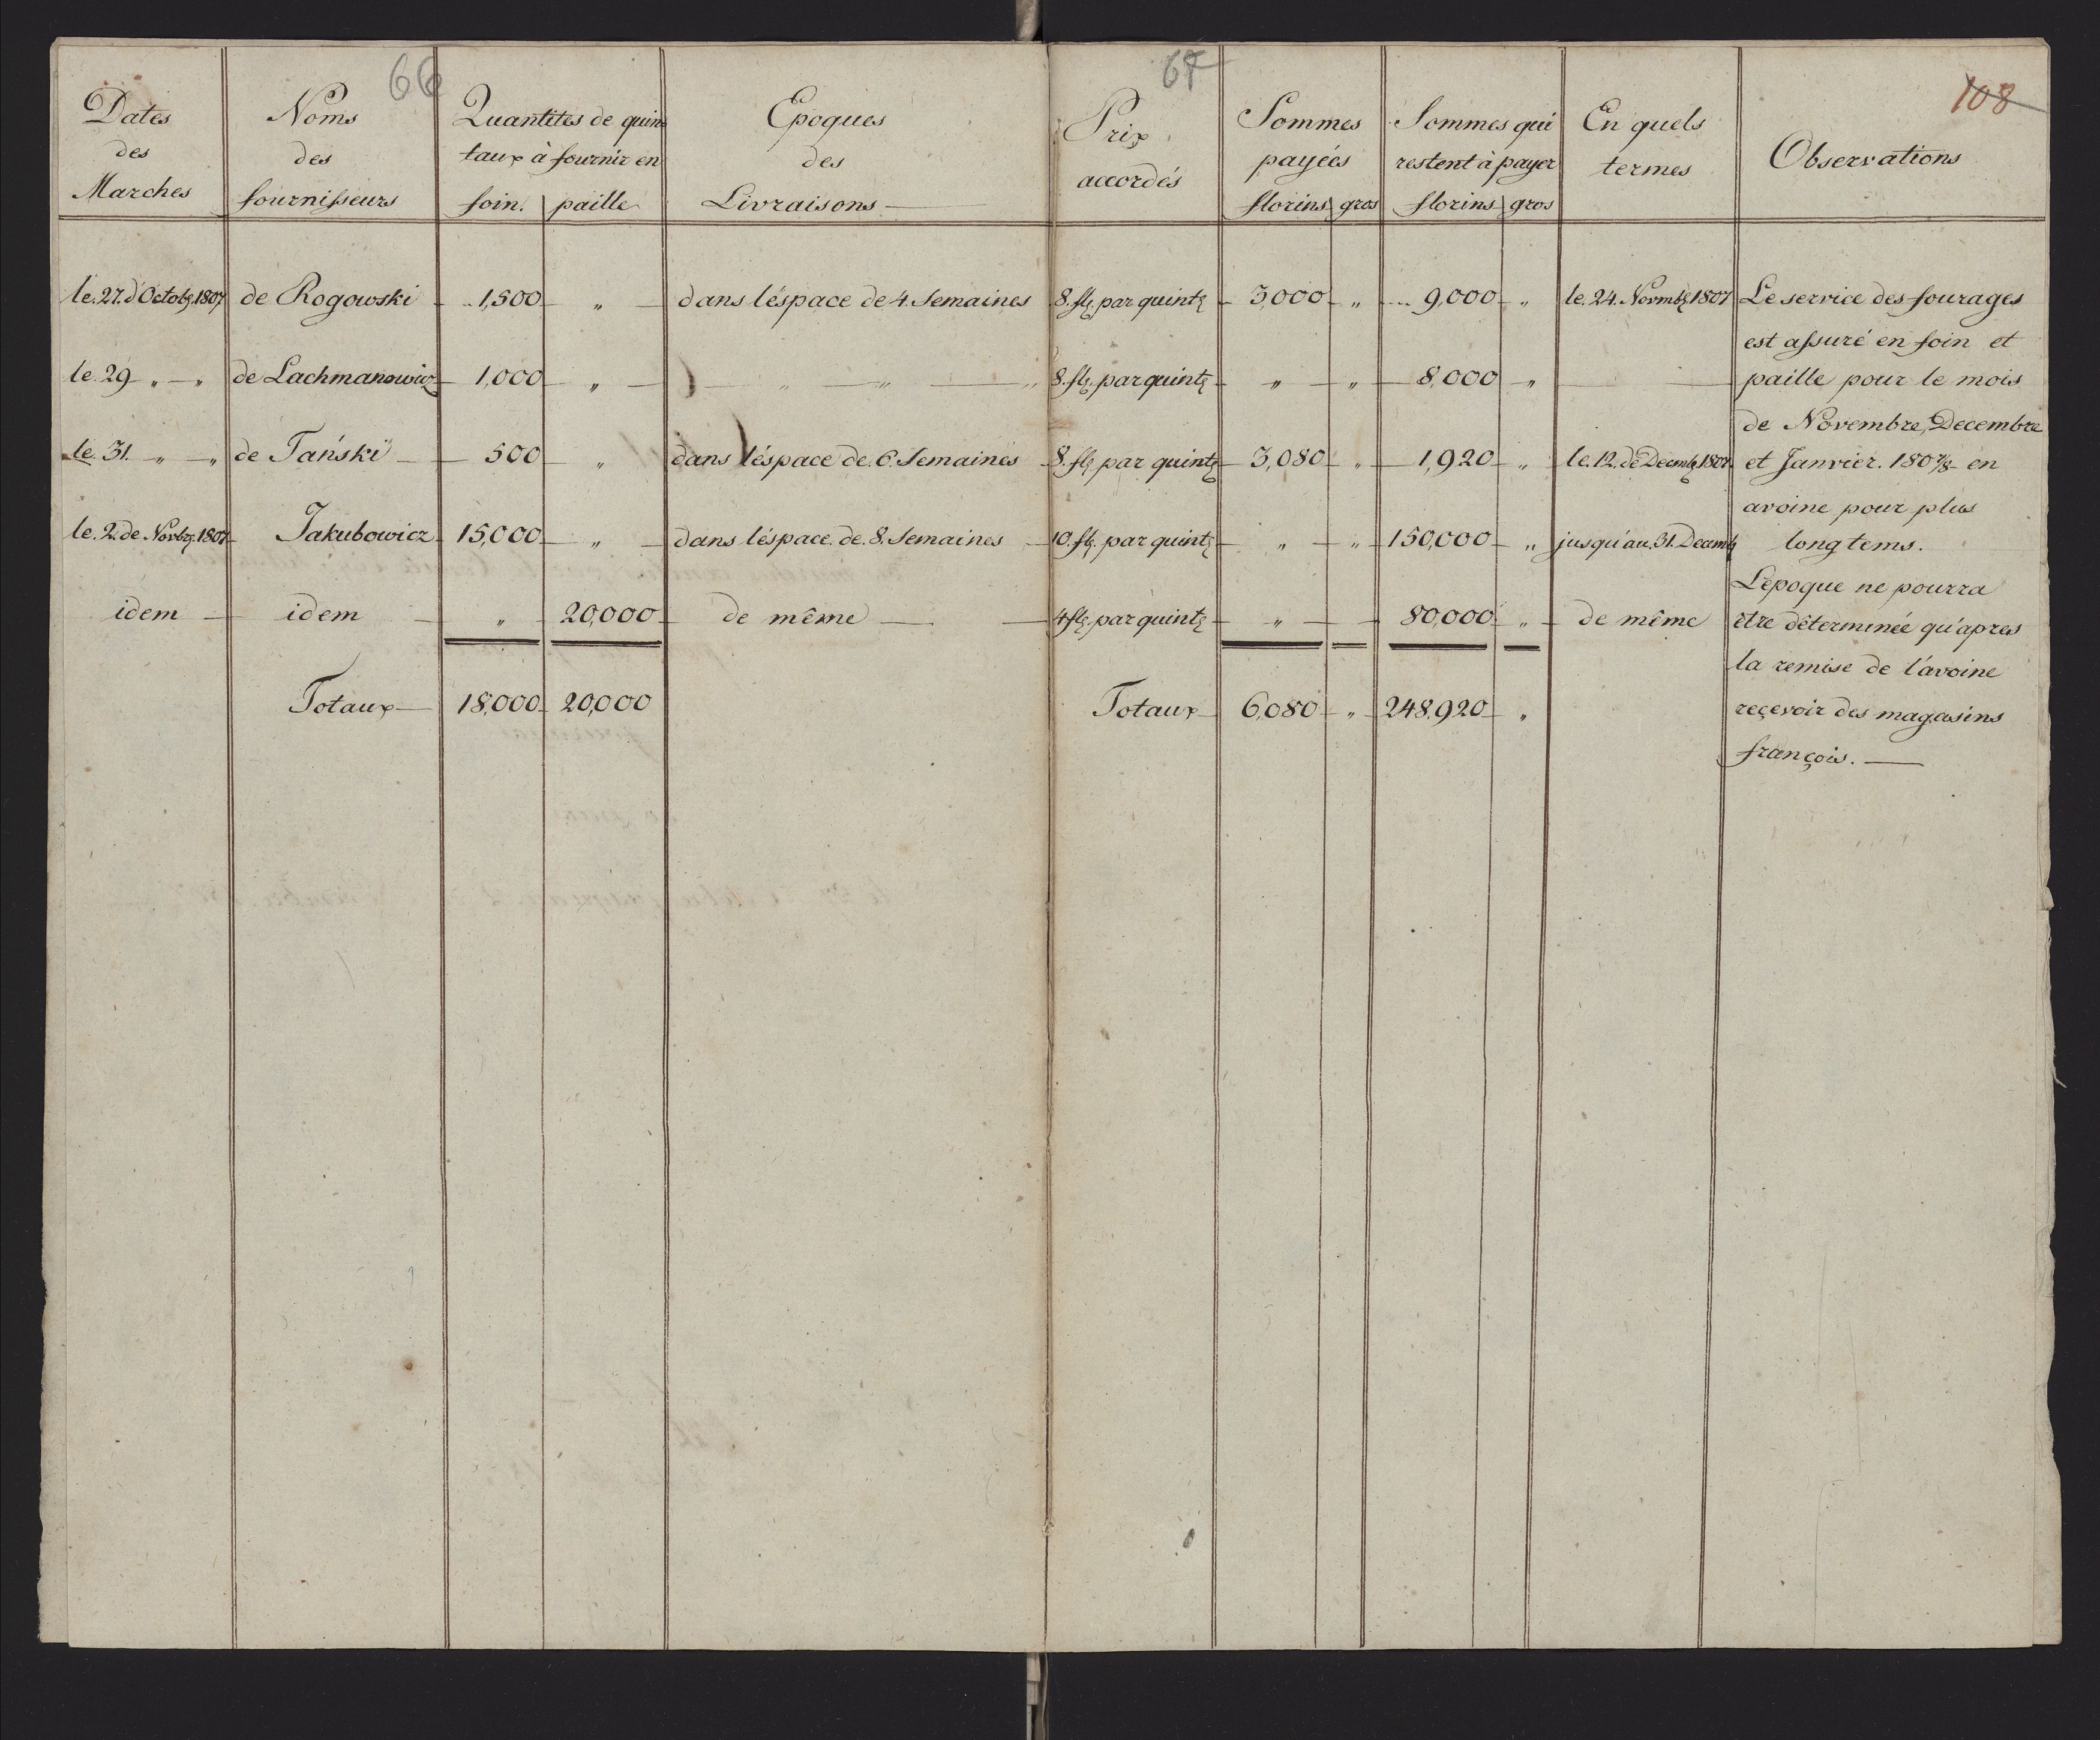 66
67
108
Dates des Marches | Noms des fournisseurs | Quantites de quin taux à fournir en foin. | paille | Epoques des Livraisons | Prix accordés | Sommes payées florins | gros | Sommes qui restent à payer florins | gros | En quels termes | Observations
le. 27. d'Octobr. 1807 | de Rogowski | 1,500 | " | dans léspace de 4. Semaines | 8. fl. par quint. | 3,000 | " | 9,000 | " | le. 24. Novmb. 1807
le. 29 " — " | de Lachmanowicz | 1,000 | " | — " — " — " | 8. fl. par quint. | " | " | 8,000 | " | —
le. 31. " — " | de Tański | 500 | " | dans léspace de. 6. Semaines | 8. fl. par quint. | 3,080 | " | 1,920 | " | le. 12. de Decmb. 1807
le. 2. de Novbr. 1807 | Jakubowicz | 15,000 | " | dans léspace. de. 8. Semaines | 10. fl. par quint. | " | " | 150,000 | " | jusqu'au. 31. Decemb.
idem | idem | " | 20,000 | de même | 4 fl. par quint. | " | — | 80,000 | " | de même
Totaux | 18,000 | 20,000 | Totaux | 6,080 | " | 248,920 | "
Le service des fourages
est assuré en foin et
paille pour le mois
de Novembre, Decembre
et Janvier. 1807/8 en
avoine pour plus
long tems.
L'epoque ne pourra
etre déterminée qu'apres
la remise de l'avoine
reçevoir des magasins
françois.